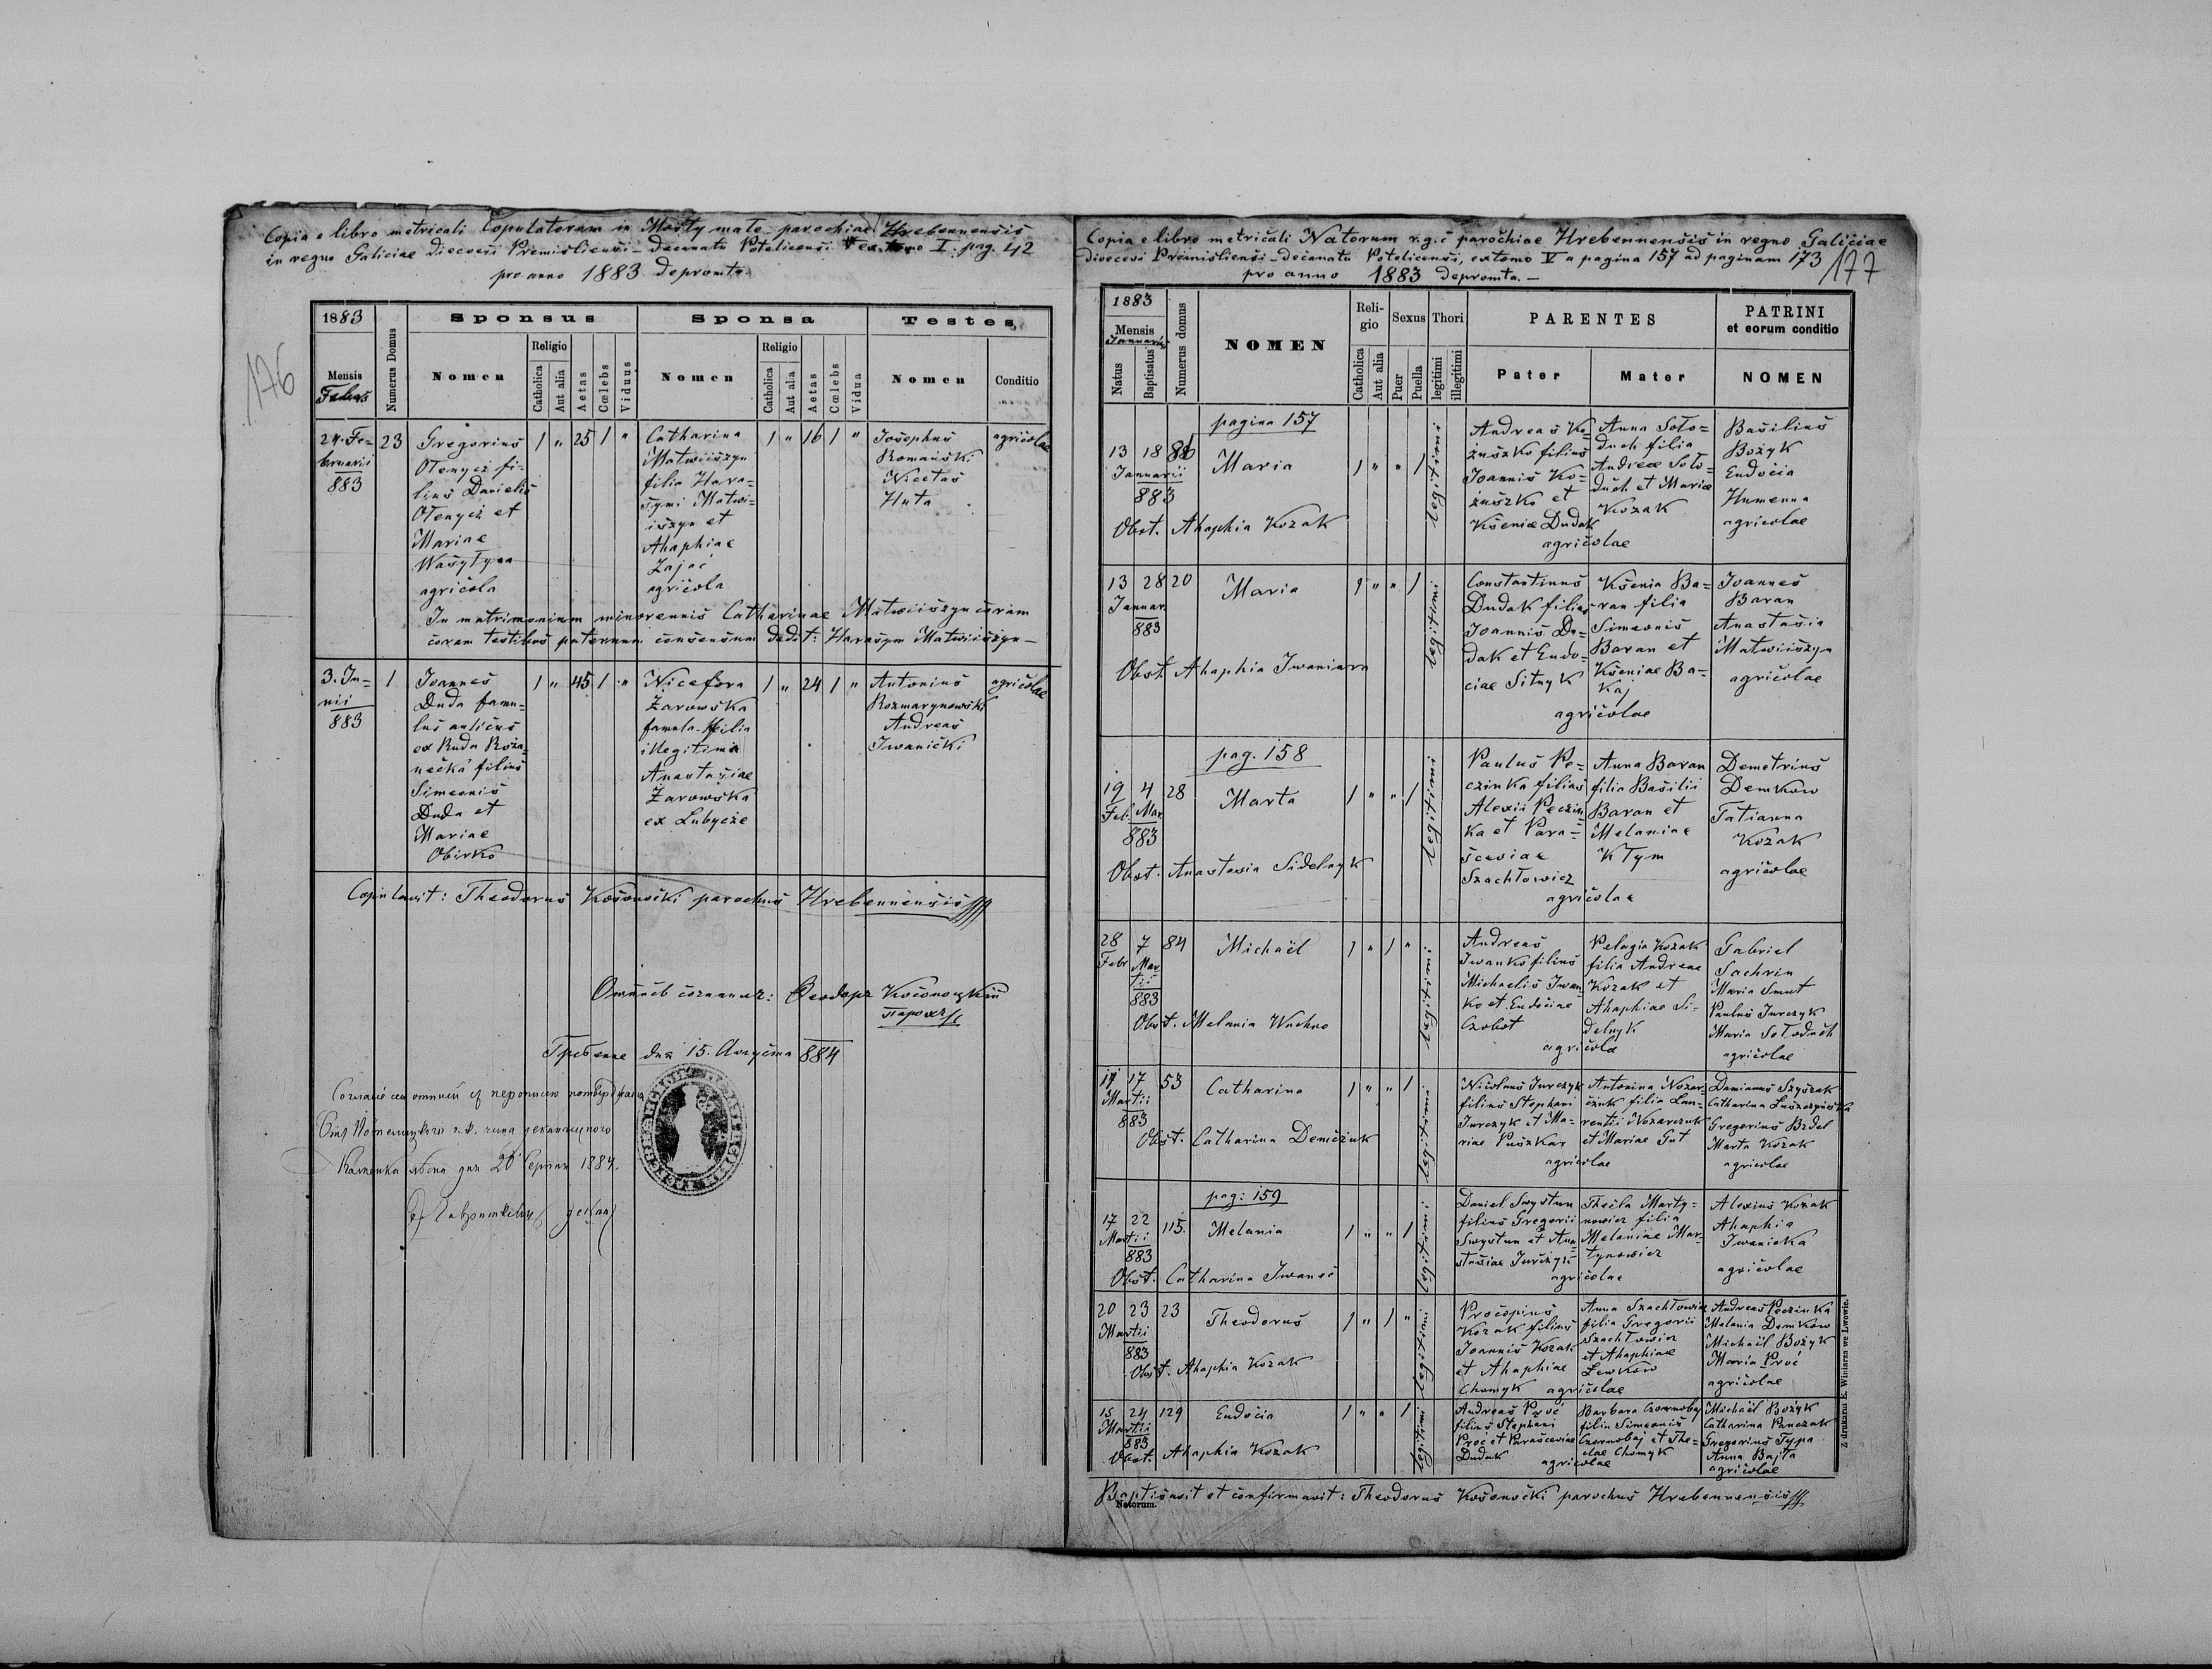 Copia e libro metricali Copulatorum in Mosty małe parochiae Hrebennensis
in regno Galiciae dioecesi Premisliensi - decanatu Potelicensi ex tomo I. pag. 42
pro anno 1883 depromta.
176
1883
Mensis
Numerus Domus
Sponsus
Nomen
Religio
Catholica
Aut alia
Aetas
Cœlebs
Viduus
Sponsa
Nomen
Religio
Catholica
Aut alia
Aetas
Cœlebs
Vidua
Testes
Nomen
Conditio
24. Fe=
bruarii
883
23
Gregorius
Ołenycz fi=
lius Danielis
Ołenycz et
Mariae
Wasyłyna
agricola
1 " 25 1 "
Catharina
Matwiiszyn
filia Hara=
symi Matwi=
iszyn et
Ahaphiae
Zajać
agricola
1 " 16 1 "
Josephus
Romański
Nicetas
Huta
agricolae
In matrimonium minorennis Catharinae Matwiiszyn coram
coram testibus paternum consensum dedit: Harasym Matwiiszyn -
3. Ju=
nii
883
1
Joannes
Duda famu=
lus aulicus
ex Ruda Róża=
necka filius
Simeonis
Duda et
Mariae
Obirko
1 " 45 1 "
Nicefora
Żarowska
famula filia
illegitima
Anastasiae
Żarowska
ex Lubycze
1 " 24 1 "
Antonius
Rozmarynowski
Andreas
Iwanicki
agricolae
Copulavit: Theodorus Kosonocki parochus Hrebennensis
Ѳеодоръ Косоноцкій
парохъ
дня 15. Августа 884
Copia e libro metricali Natorum r.g.c parochiae Hrebennensis in regno Galiciae
dioecesi Premisliensi - decanatu Potelicensi, ex tomo V a pagina 157 ad paginam 173
pro anno 1883 depromta. -
177
1883
Mensis
Januarius
Natus
Baptisatus
Numerus domus
NOMEN
Reli-
gio
Catholica
Aut alia
Sexus
Puer
Puella
Thori
legitimi
illegitimi
PARENTES
Pater
Mater
PATRINI
et eorum conditio
NOMEN
pagina 157
13 18
Januarii
883
Maria
1 " " 1
legitimi
Andreas Ko=
żuszko filius
Joannis Ko=
żuszko et
Kseniae Dudak
Anna Soło=
duch filia
Andreae Soło=
duch et Mariae
Kozak
agricolae
Basilius
Bożyk
Eudocia
Humenna
agricolae
Obst. Ahaphia Kozak
13 28 20
Januar.
883
Maria
1 " " 1
legitimi
Constantinus
Dudak filius
Joannis Du=
dak et Eudo=
ciae Sitnyk
Ksenia Ba=
ran filia
Simeonis
Baran et
Kseniae Ba=
kaj
agricolae
Joannes
Baran
Anastasia
Matwiiszyn
agricolae
Obst. Ahaphia
pag. 158
19 4 28
Feb. Mar
883
Marta
1 " " 1
legitimi
Paulus Pe=
czinka filius
Alexii Peczin
ka et Para=
sceviae
Szachłowicz
Anna Baran
filia Basilii
Baran et
Melaniae
Kłym
agricolae
Demetrius
Demkow
Tatianna
Kozak
agricolae
Obst. Anastasia Sidelnyk
28 7 84
Febr Mar
tii
883
Michaël
1 " 1 "
legitimi
Andreas
Iwanko filius
Michaelis Iwan=
ko et Eudociae
Czobot
Pelagia Kozak
filia Andreae
Kozak et
Ahaphiae Si=
delnyk
agricolae
Gabriel
Sachrin
Maria Smut
Paulus Jurczyk
Maria Sołoduch
agricolae
Obst. Melania Wachno
17 17 53
Martii
883
Catharina
1 " " 1
legitimi
Nicolaus Jurczyk
filius Stephani
Jurczyk et Ma=
riae Puszkar
Antonina Nazar=
czuk filia Lau=
rentii Nazarczuk
et Mariae Gut
agricolae
Damianus Szyszak
Catharina
Gregorius
Marta Kozak
agricolae
Obst. Catharina Demczuk
pag: 159
17 22 115.
Martii
883
Melania
1 " " 1
legitimi
Daniel Swystun
filius Gregorii
Swystun et Ana
stasiae Jurczyk
Thecla Marty=
nowicz filia
Melaniae Mar=
tynowicz
agricolae
Alexius Kozak
Ahaphia
Iwanicka
agricolae
Obst. Catharina Iwaneć
20 23 23
Martii
883
Theodorus
1 " 1 "
legitimi
Procopius
Kozak filius
Joannis Kozak
et Ahaphiae
Chomyk
Anna Szachłowicz
filia Gregorii
Szachłowicz
et Ahaphiae
Lewkow
agricolae
Andreas Peczinka
Melania Demkow
Michaël Bożyk
Maria Proć
agricolae
Obst. Ahaphia Kozak
15 24 129
Martii
883
Eudocia
1 " " 1
legitimi
Andreas Proć
filius Stephani
Proć et Parasceviae
Dudak
Barbara Czornobaj
filia Simeonis
Czornobaj et The=
clae Chomyk
agricolae
Michaël Bożyk
Catharina Panczak
Gregorius Typa
Anna Bajta
agricolae
Obst. Ahaphia Kozak
Baptisavit et confirmavit: Theodorus Kosonocki parochus Hrebennensis
Natorum.
Z drukarni E. Winiarza we Lwowie.